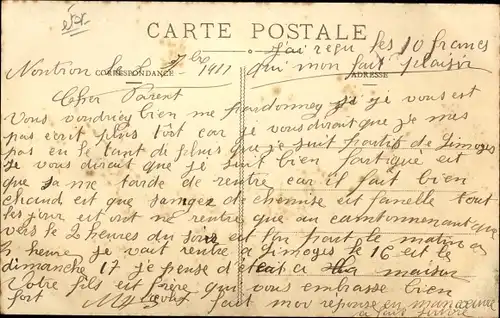 CARTE POSTALE
J'ai reçu les 10 francs
Nontron le 7bre 1911 qui mon fait plaisir
CORRESPONDANCE ADRESSE
Cher Parent
Vous voudriez bien me pardonnez si je vous est
pas ecrit plus tôt car je vous dirait que je nais
pas eu le tant depuis que je suit partit de Limoges
je vous dirait que je suit bien fartigue est
que sa me tarde de rentre car il fait bien
chaud est que sanges de chemise est fanelle tout
les jour est ont ne rentre que au cantonnement que
vers le 2 heures du soir est l'on part le matin a
3 heure je vait rentre a Limoges le 16 est le
dimanche 17 je pense d'etait a la maison
Votre fils est frère qui vous embrasse bien
fort fait mot reponse en manœuvre
a faire suivre